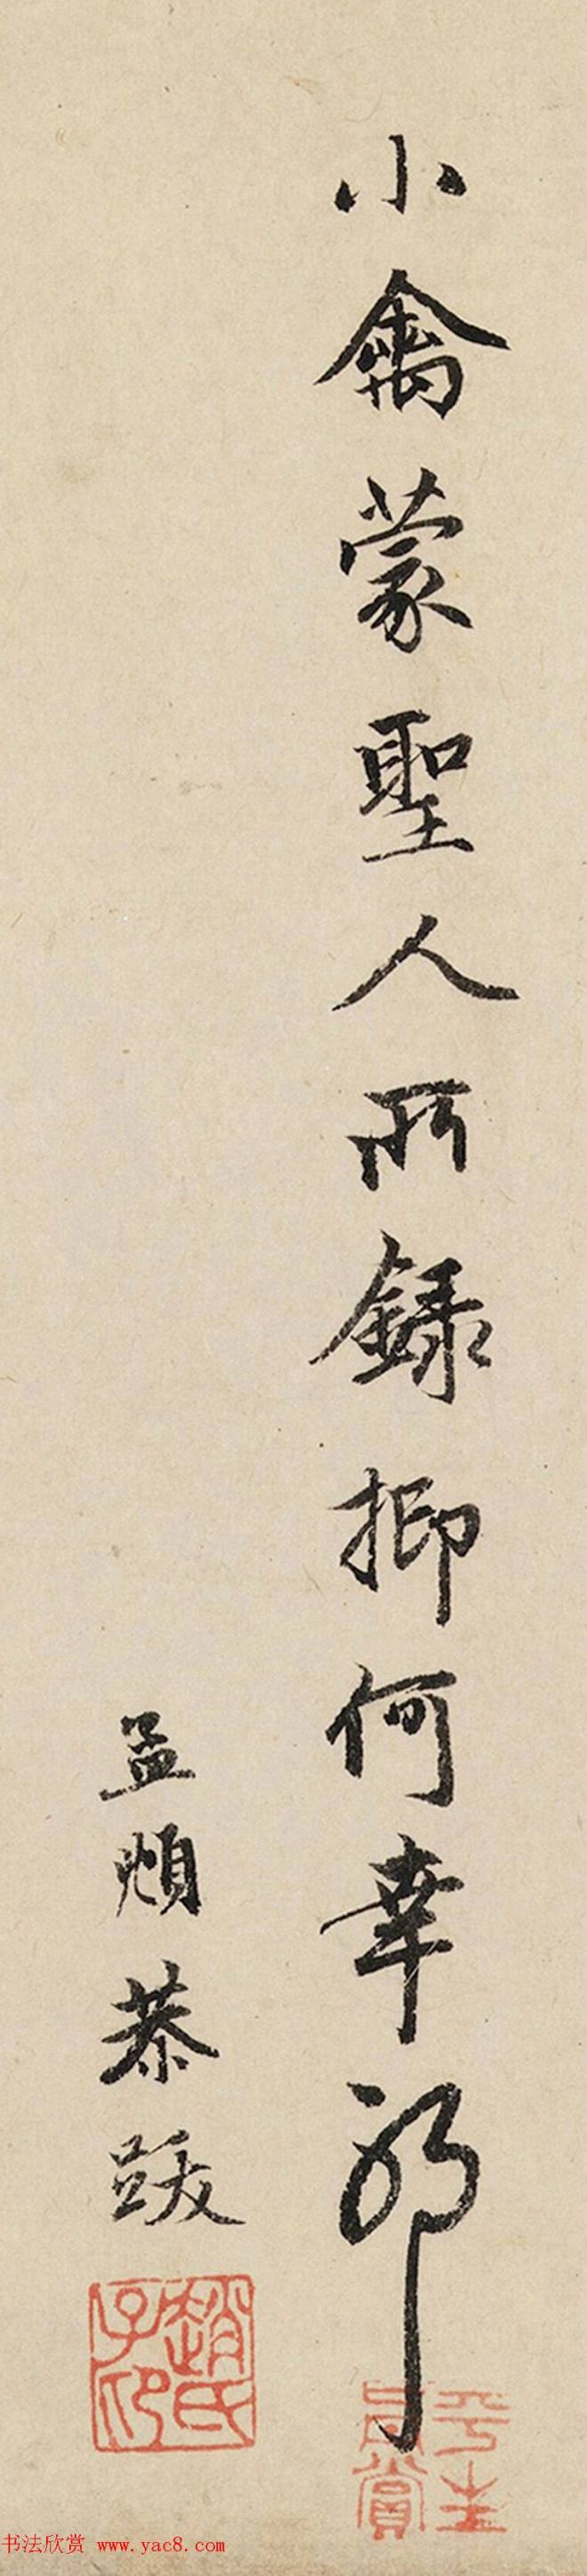 小禽蒙聖人所錄抑何幸耶
孟頫恭跋
趙氏子印
平生真賞
书法欣赏 www.yac8.com